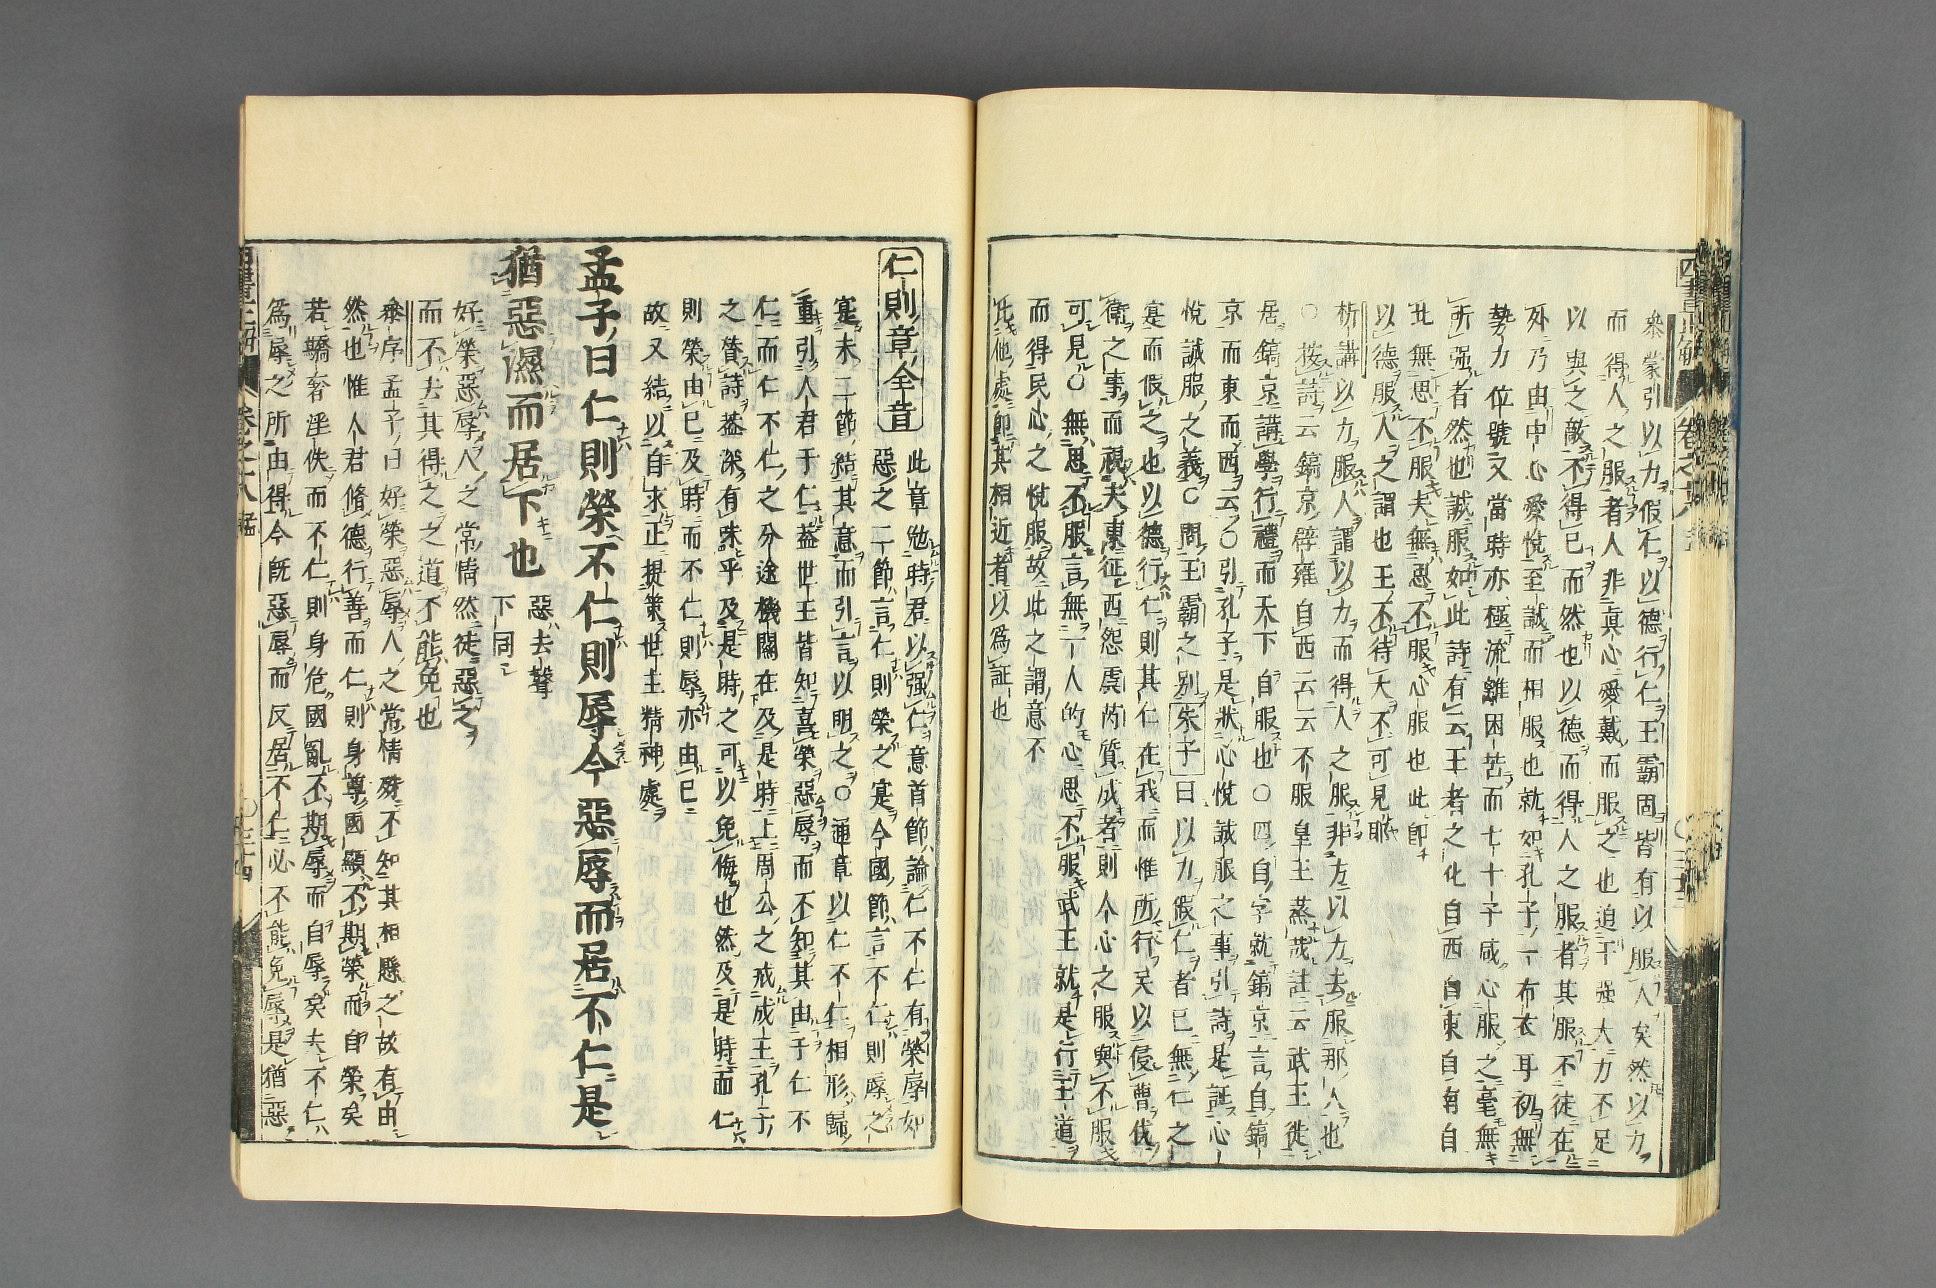 參蒙引以力假仁以德行仁王霸固皆有以服人矣然以力
而得人之服者人非真心愛戴而服之也迫于強大力不足
以與之敵不得已而然也以德而得人之服者其服不徒在
外乃由中心愛悅至誠而相服也就如孔子一布衣耳初無
勢力位號又當時亦極流離困苦而七十子咸心服之毫無
所强者然也誠服如此詩有云王者之化自西自東自南自
北無思不服夫無思不服心服也此卽
以德服人之謂也王不待大不可見耶
析講以力服人謂以力而得人之服非方以力去服那人也
○按詩云鎬京辟雍自西云云不服皇王蒸哉註云武王徙
居鎬京講學行禮而天下自服也○四自字就鎬京言自鎬
京而東而西云○引孔子是狀心悅誠服之事引詩是証心
悅誠服之義○問王霸之別朱子曰以力假仁者已無仁之
寔而假之也以德行仁則其仁在我而惟所行矣以侵曹伐
衛之事而視夫東征西怨虞芮質成者則人心之服與不服
可見○無思不服言無一人的心思不服武王就是行王道
而得民心之悅服故此之謂意不
比他處節其相近者以爲証也
仁則章全旨
此章勉時君以强仁意首節論仁不仁有榮辱如
惡之二節言仁則榮之寔今國節言不仁則辱之
寔末二節結其意而引言以明之○通章以仁不仁相形歸
重引人君于仁蓋世主皆知喜榮惡辱而不知其由于仁不
仁而仁不仁之分途機關在及是時上周公之戒成王孔子
之賛詩蓋深有味乎及是時之可以免侮也然及是時而仁
則榮由已及時而不仁則辱亦由已
故又結以自求正提策世主精神處
孟子曰仁則榮不仁則辱今惡辱而居不仁是
猶惡濕而居下也
惡去聲
下同
好榮惡辱人之常情然徒惡之
而不去其得之之道不能免也
參序孟子曰好榮惡辱人之常情殊不知其相懸之故有由
然也惟人君脩德行善而仁則身尊國顯不期榮而自榮矣
若驕奢淫佚而不仁則身危國亂不期辱而自辱矣夫不仁
爲辱之所由得今旣惡辱而反居不仁必不能免辱是猶惡